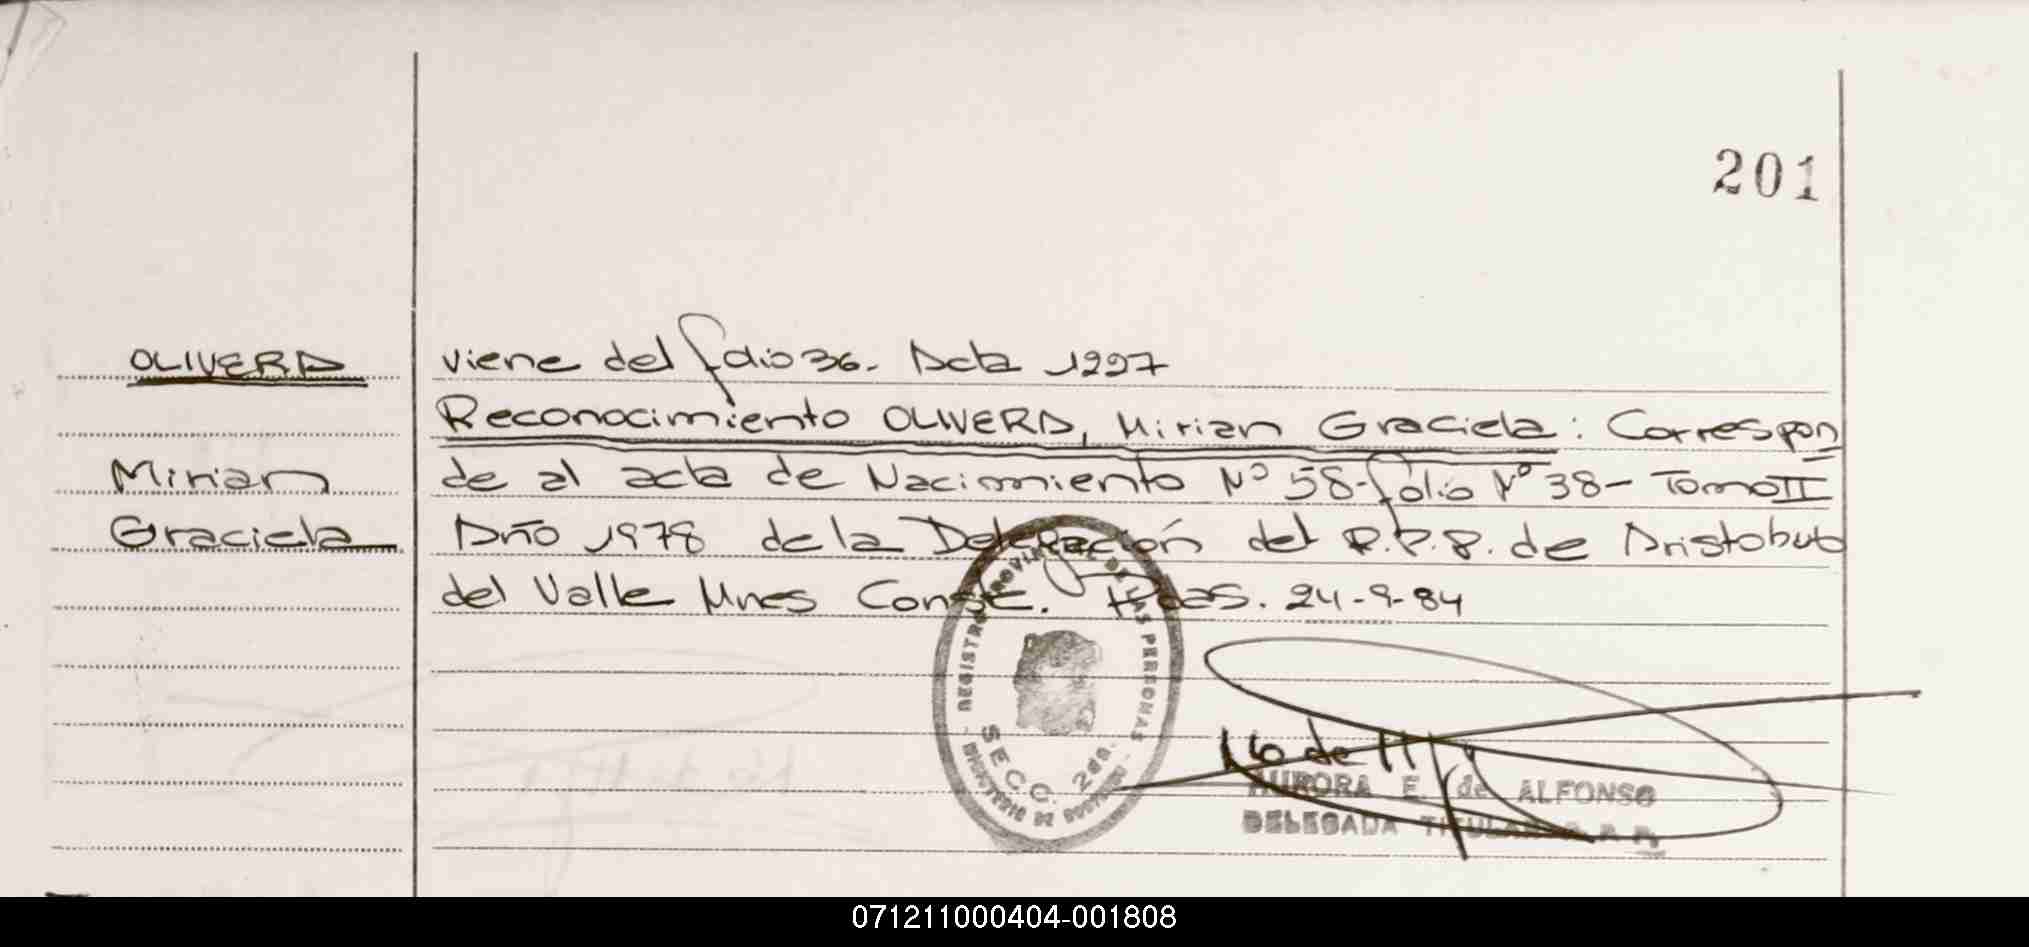 201
OLIVERA
viene del folio 36. Acta 1227
Reconocimiento OLIVERA, Mirian Graciela: Correspon
Mirian
de al acta de Nacimiento Nº 58-folio Nº 38- Tomo II
Graciela
Año 1978 de la Delegación del R.P.P. de Aristobulo
del Valle Mnes Const. Pdas. 24-9-84
REGISTRO PROVINCIAL DE LAS PERSONAS
SECC. 288.
MINISTERIO DE GOBIERNO
AURORA E. de ALFONSO
DELEGADA TITULAR
071211000404-001808